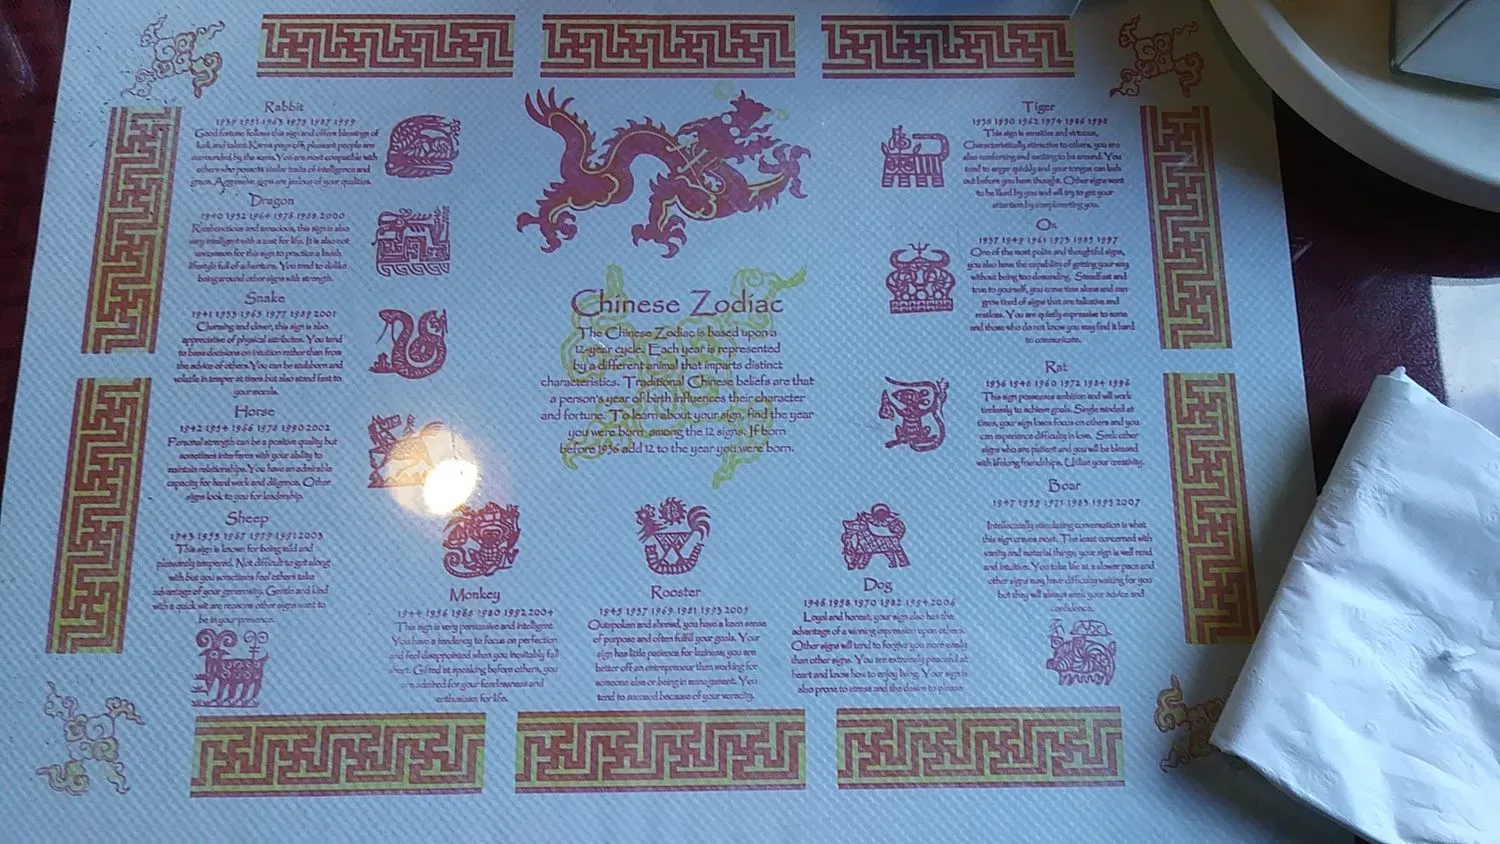 Rabbit
1939 1951 1963 1975 1987 1999
Good fortune follows this sign and offers blessings of
luck and talent. Karma pays off, pleasant people are
surrounded by the same. You are most compatible with
others who possess similar traits of intelligence and
grace. Aggressive signs are jealous of your qualities.
Dragon
1940 1952 1964 1976 1988 2000
Rambunctious and tenacious, this sign is also
very intelligent with a zest for life. It is also not
uncommon for this sign to practice a lavish
lifestyle full of adventure. You tend to dislike
being around other signs with strength.
Snake
1941 1953 1965 1977 1989 2001
Charming and clever, this sign is also
appreciative of physical attributes. You tend
to base decisions on intuition rather than from
the advice of others. You can be stubborn and
volatile in temper at times but also stand fast to
your morals.
Horse
1942 1954 1966 1978 1990 2002
Personal strength can be a positive quality but
sometimes interferes with your ability to
maintain relationships. You have an admirable
capacity for hard work and diligence. Other
signs look to you for leadership.
Sheep
1943 1955 1967 1979 1991 2003
This sign is known for being mild and
pleasantly tempered. Not difficult to get along
with but you sometimes feel others take
advantage of your generosity. Gentle and kind
with a quick wit are reasons other signs want to
be in your presence.
Chinese Zodiac
The Chinese Zodiac is based upon a
12-year cycle. Each year is represented
by a different animal that imparts distinct
characteristics. Traditional Chinese beliefs are that
a person's year of birth influences their character
and fortune. To learn about your sign, find the year
you were born among the 12 signs. If born
before 1936 add 12 to the year you were born.
Monkey
1944 1956 1968 1980 1992 2004
This sign is very persuasive and intelligent.
You have a tendency to focus on perfection
and feel disappointed when you inevitably fall
short. Gifted at speaking before others, you
are admired for your fearlessness and
enthusiasm for life.
Rooster
1945 1957 1969 1981 1993 2005
Outspoken and shrewd, you have a keen sense
of purpose and often fulfill your goals. Your
sign has little patience for laziness; you are
better off an entrepreneur than working for
someone else or being in management. You
tend to succeed because of your veracity.
Dog
1946 1958 1970 1982 1994 2006
Loyal and honest, your sign also has the
advantage of a winning impression upon others.
Other signs will tend to forgive you more easily
than other signs. You are extremely peaceful at
heart and know how to enjoy living. Your sign is
also prone to stress and the desire to please
Tiger
1938 1950 1962 1974 1986 1998
This sign is sensitive and virtuous.
Characteristically attractive to others, you are
also comforting and exciting to be around. You
tend to anger quickly and your tongue can lash
out before you have thought. Other signs want
to be liked by you and will try to get your
attention by complimenting you.
Ox
1937 1949 1961 1973 1985 1997
One of the most polite and thoughtful signs,
you also have the capability of getting your way
without being too demanding. Steadfast and
true to yourself, you crave time alone and can
grow tired of signs that are talkative and
restless. You are quietly expressive to some
and those who do not know you may find it hard
to communicate.
Rat
1936 1948 1960 1972 1984 1996
This sign possesses ambition and will work
tirelessly to achieve goals. Single minded at
times, your sign loses focus on others and you
can experience difficulty in love. Seek other
signs who are patient and you will be blessed
with lifelong friendships. Utilize your creativity.
Boar
1947 1959 1971 1983 1995 2007
Intellectually stimulating conversation is what
this sign craves most. The least concerned with
vanity and material things; your sign is well read
and intuitive. You take life at a slower pace and
other signs may have difficulty waiting for you
but they will always seek your advice and
confidence.